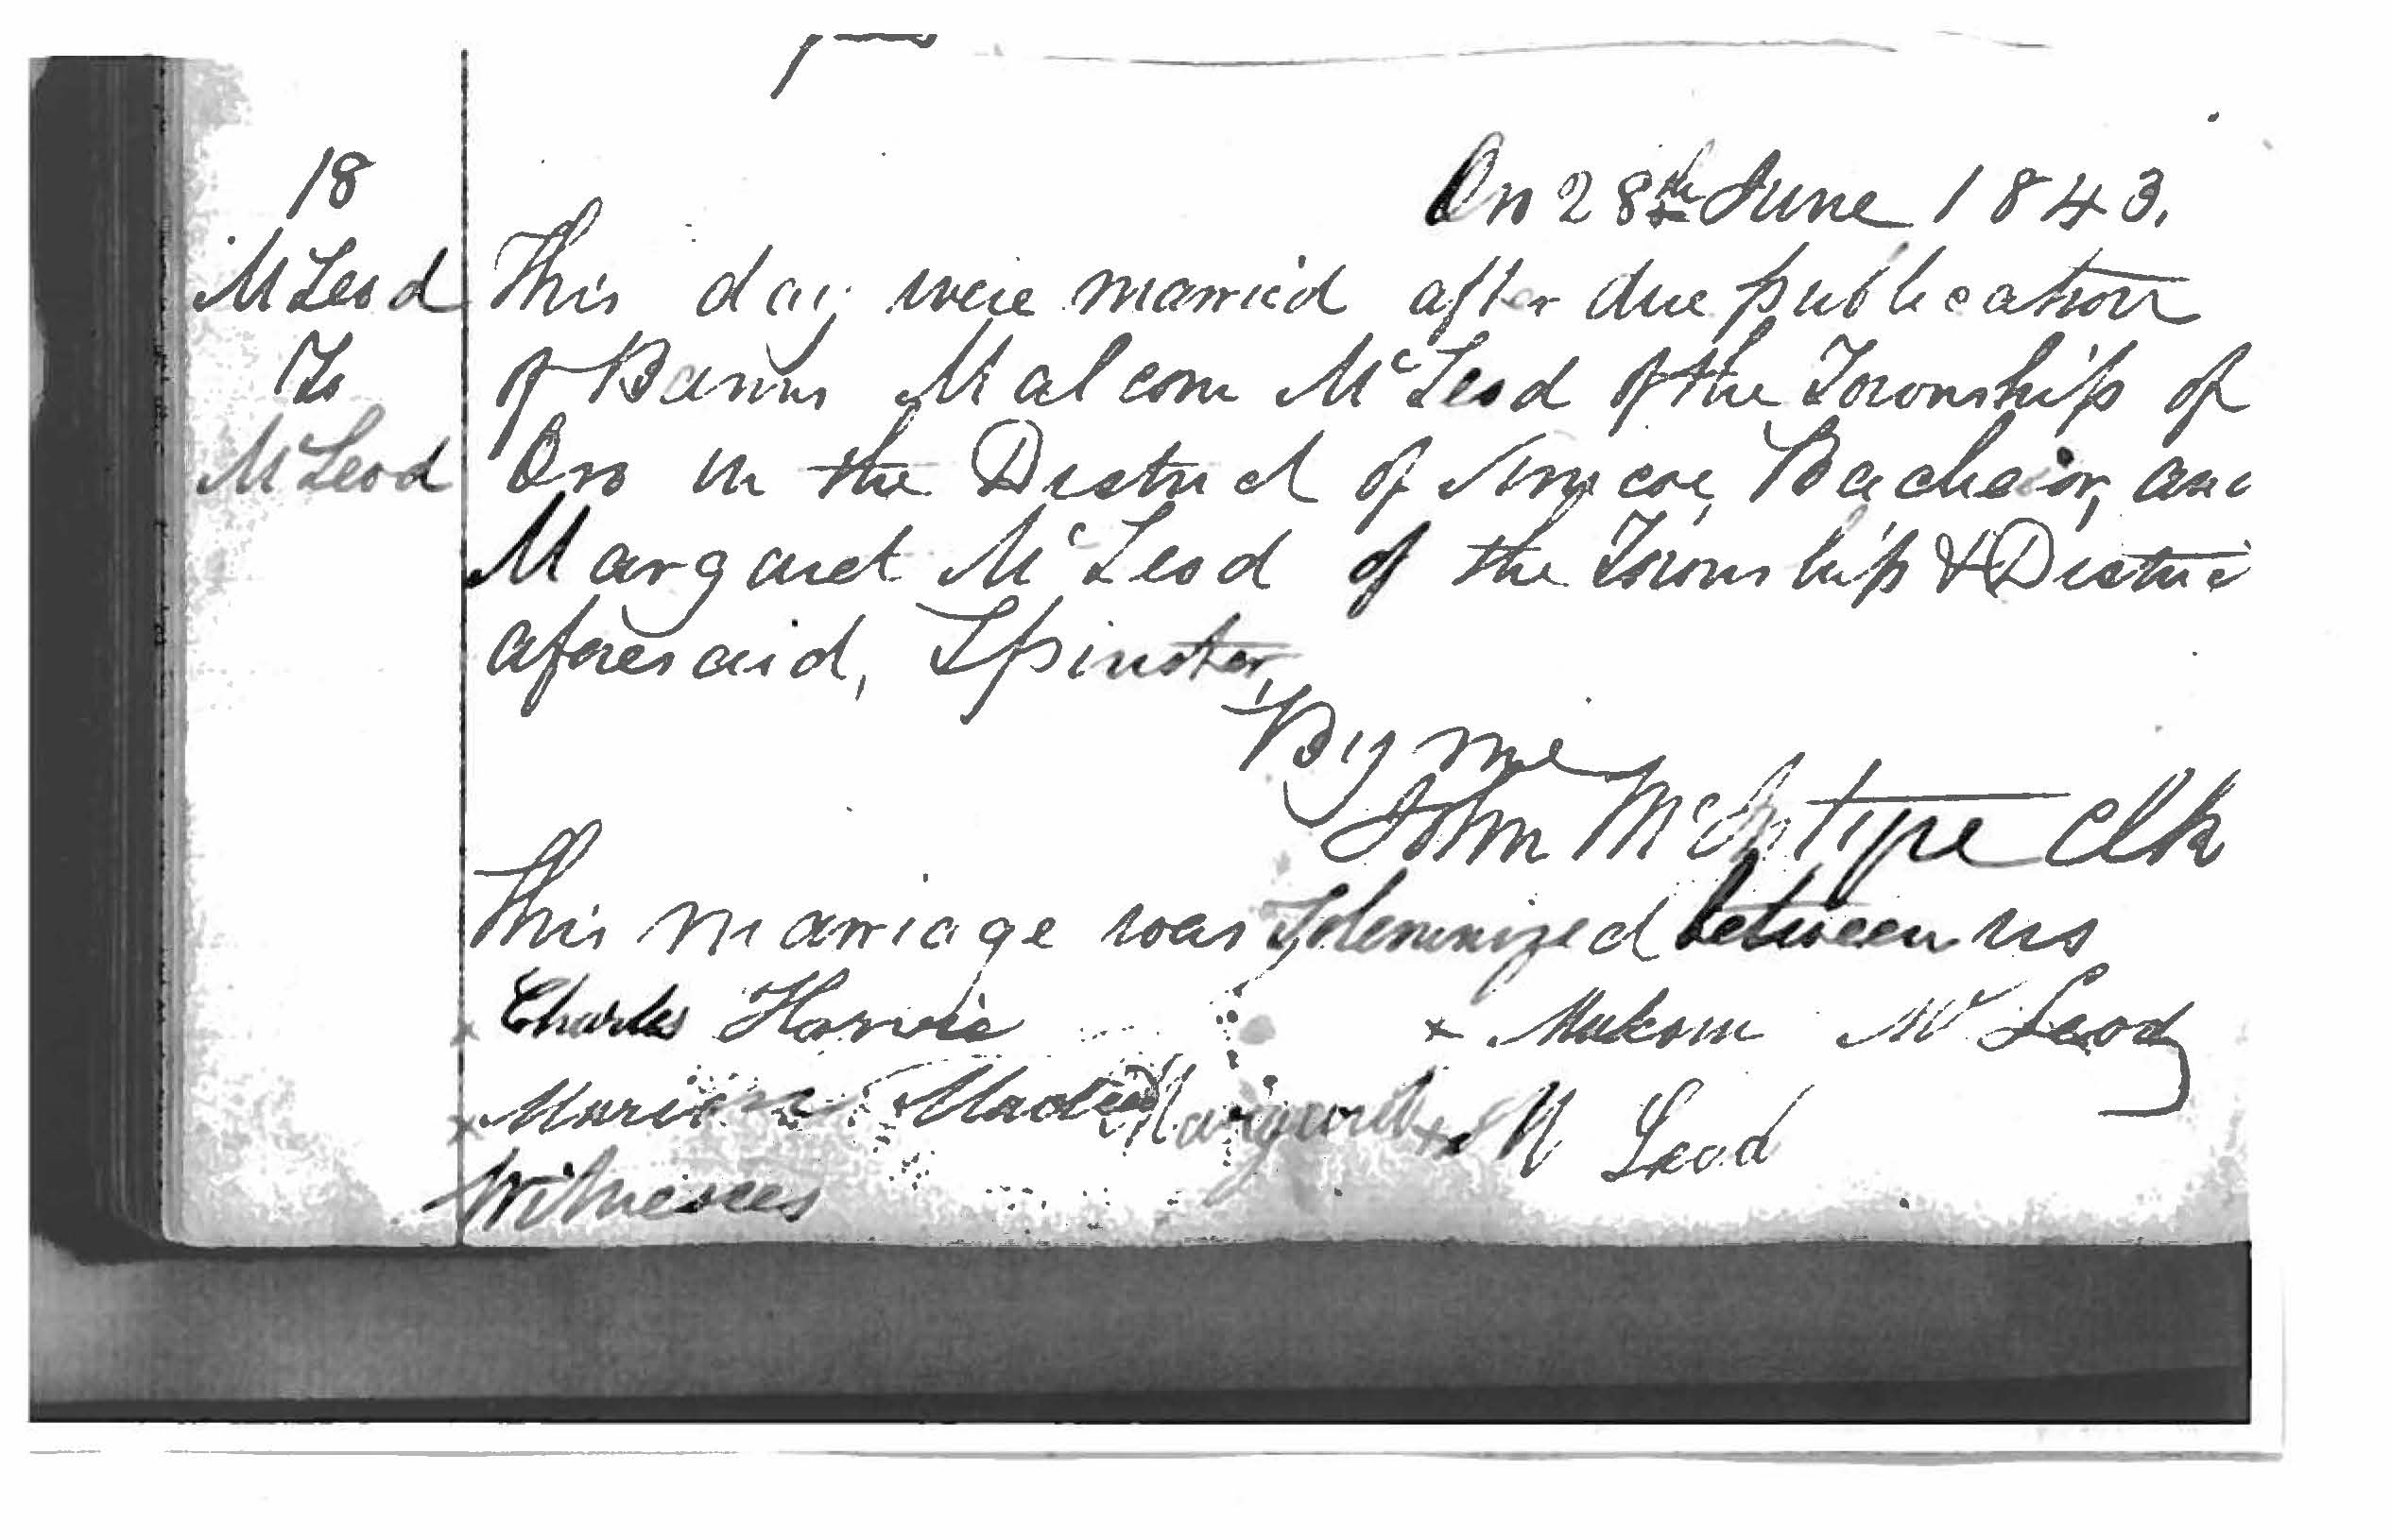 18
On 28th June 1843.
McLeod This day were married after due publication
To of Banns Malcom McLeod of the Township of
McLeod Oro in the District of Simcoe, Bachelor, and
Margaret McLeod of the Township & District
aforesaid, Spinster,
By me
John McIntyre Clk
This marriage was Solemnized between us
x Charles Harvie x Malcom Mc Leod
x Margaret x Mc Leod
Witnesses